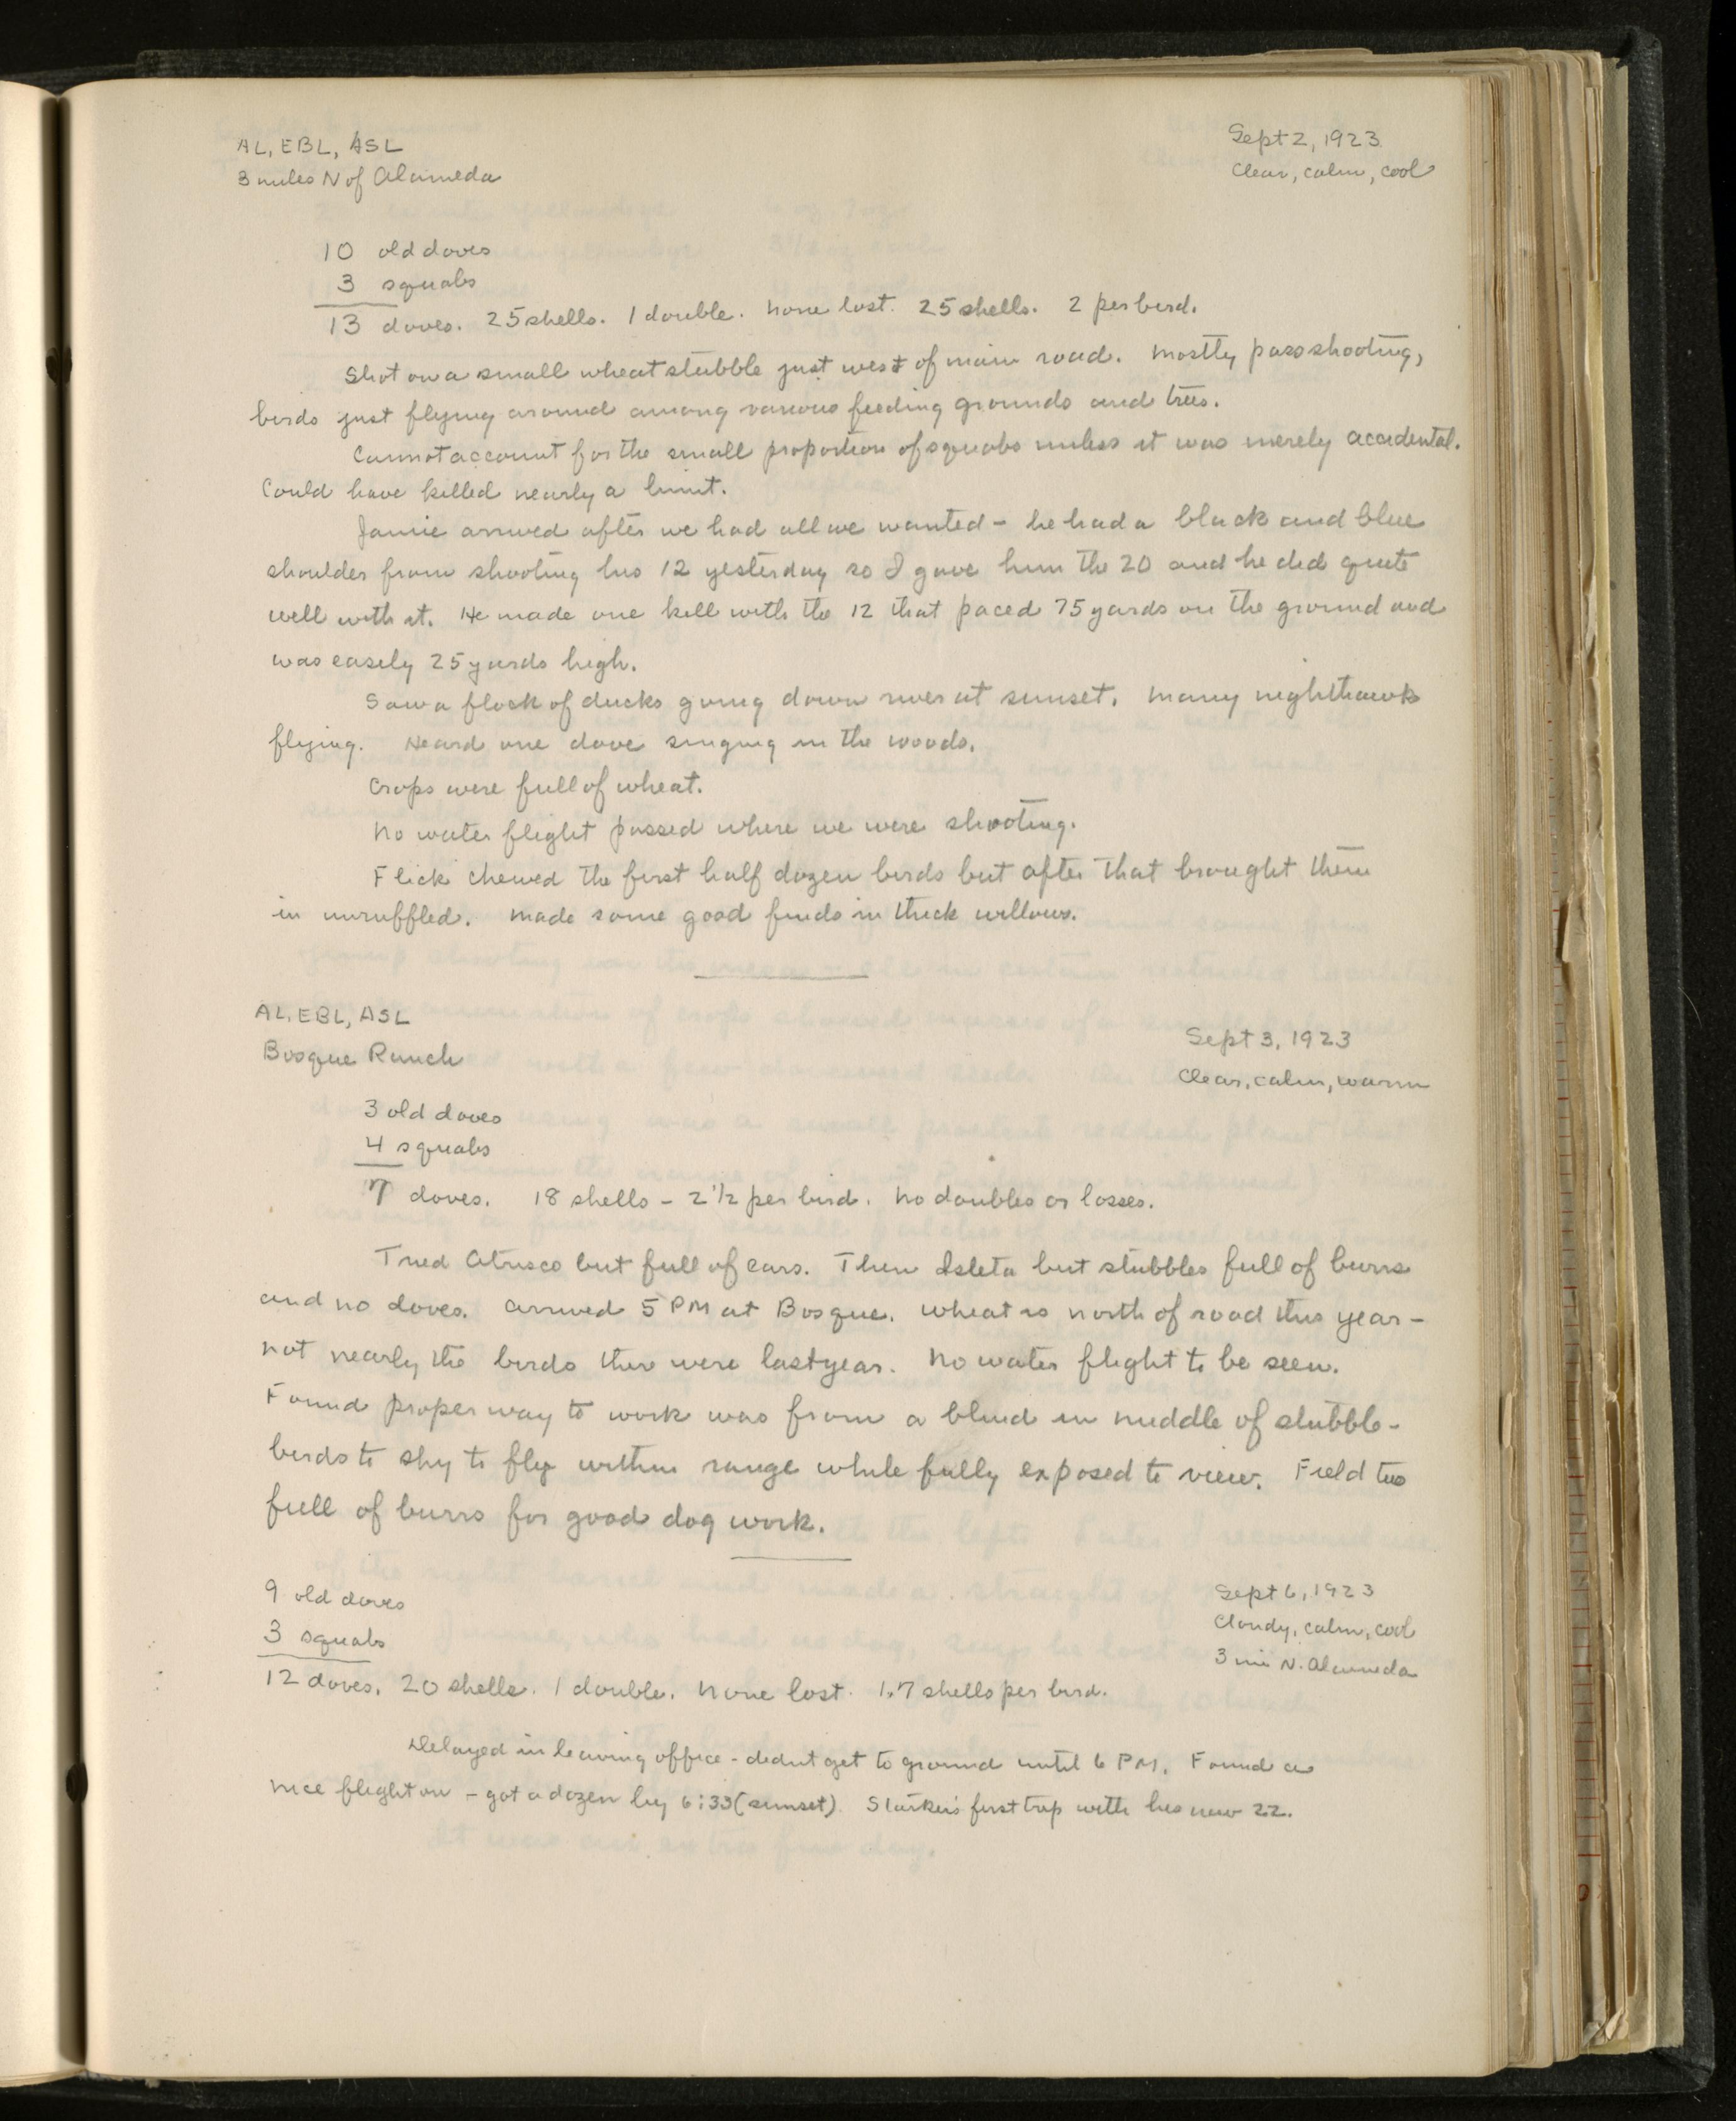 AL, EBL, ASL
Sept 2, 1923
3 miles N of Alameda
Clear, calm, cool
10 old doves
3 squabs
13 doves. 25 shells. 1 double. None lost. 25 shells. 2 per bird.
Shot on a small wheat stubble just west of main road. Mostly pass shooting,
birds just flying around among various feeding grounds and trees.
Cannot account for the small proportion of squabs unless it was merely accidental.
Could have killed nearly a limit.
Jamie arrived after we had all we wanted - he had a black and blue
shoulder from shooting his 12 yesterday so I gave him the 20 and he did quite
well with it. He made one kill with the 12 that paced 75 yards on the ground and
was easily 25 yards high.
Saw a flock of ducks going down river at sunset. Many nighthawks
flying. Heard one dove singing in the woods.
Crops were full of wheat.
No water flight passed where we were shooting.
Flick chewed the first half dozen birds but after that brought them
in unruffled. Made some good finds in thick willows.
AL, EBL, ASL
Sept 3, 1923
Bosque Ranch
Clear, calm, warm
3 old doves
4 squabs
7 doves. 18 shells - 2 1/2 per bird. No doubles or losses.
Tried Atrisco but full of cars. Then Isleta but stubbles full of burrs
and no doves. Arrived 5 PM at Bosque. Wheat is north of road this year -
not nearly the birds there were last year. No water flight to be seen.
Found proper way to work was from a blind in middle of stubble -
birds to shy to fly within range while fully exposed to view. Field too
full of burrs for good dog work.
9 old doves
Sept 6, 1923
3 squabs
Cloudy, calm, cool
3 mi N. Alameda
12 doves. 20 shells. 1 double. None lost. 1.7 shells per bird.
Delayed in leaving office - didnt get to ground until 6 PM. Found a
nice flight on - got a dozen by 6:33 (sunset). Starker's first trip with his new 22.